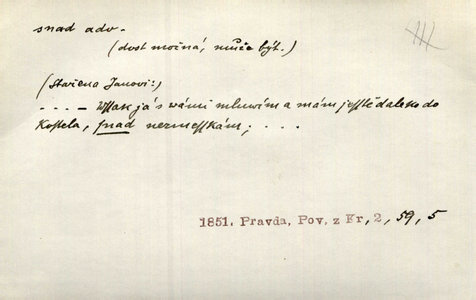 snad adv.
(dost možná, může být.)
(Stařena Janovi:)
. . . . — Wssak já s wámi mluwím a mám jesstě daleko do
Kostela, snad nezmesskám; . . . .
1851. Pravda, Pov. z Kr, 2, 59, 5